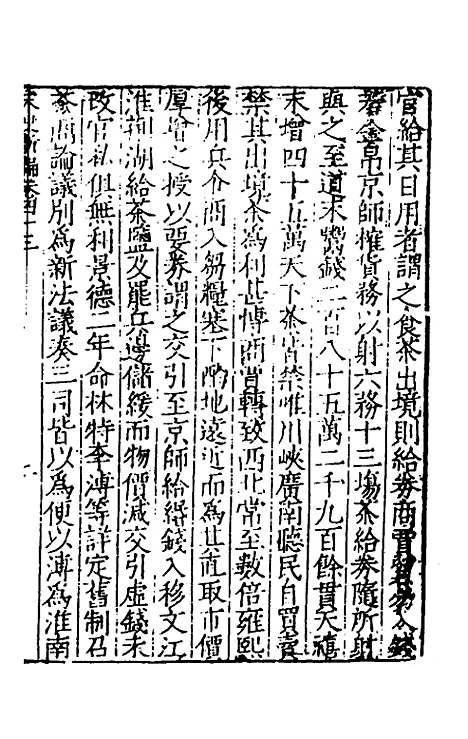 官給其日用者謂之食茶出境則給券商賈貿易入錢
若金帛京師榷貨務以射六務十三場茶給券隨所射
與之至道末鬻錢二百八十五萬二千九百餘貫天禧
末增四十五萬天下茶皆禁唯川峽廣南聽民自買賣
禁其出境茶為利甚博商賈轉致西北常至數倍雍熙
後用兵令商入芻糧塞下酌地遠近而為其直取市價
厚增之授以要券謂之交引至京師給緡錢入移文江
淮荆湖給茶鹽及罷兵邊儲緩而物價減交引虛錢未
改官私俱無利景德二年命林特李溥等詳定舊制召
茶商論議別為新法議奏三司皆以為便以溥為淮南
宋史新編卷四十三